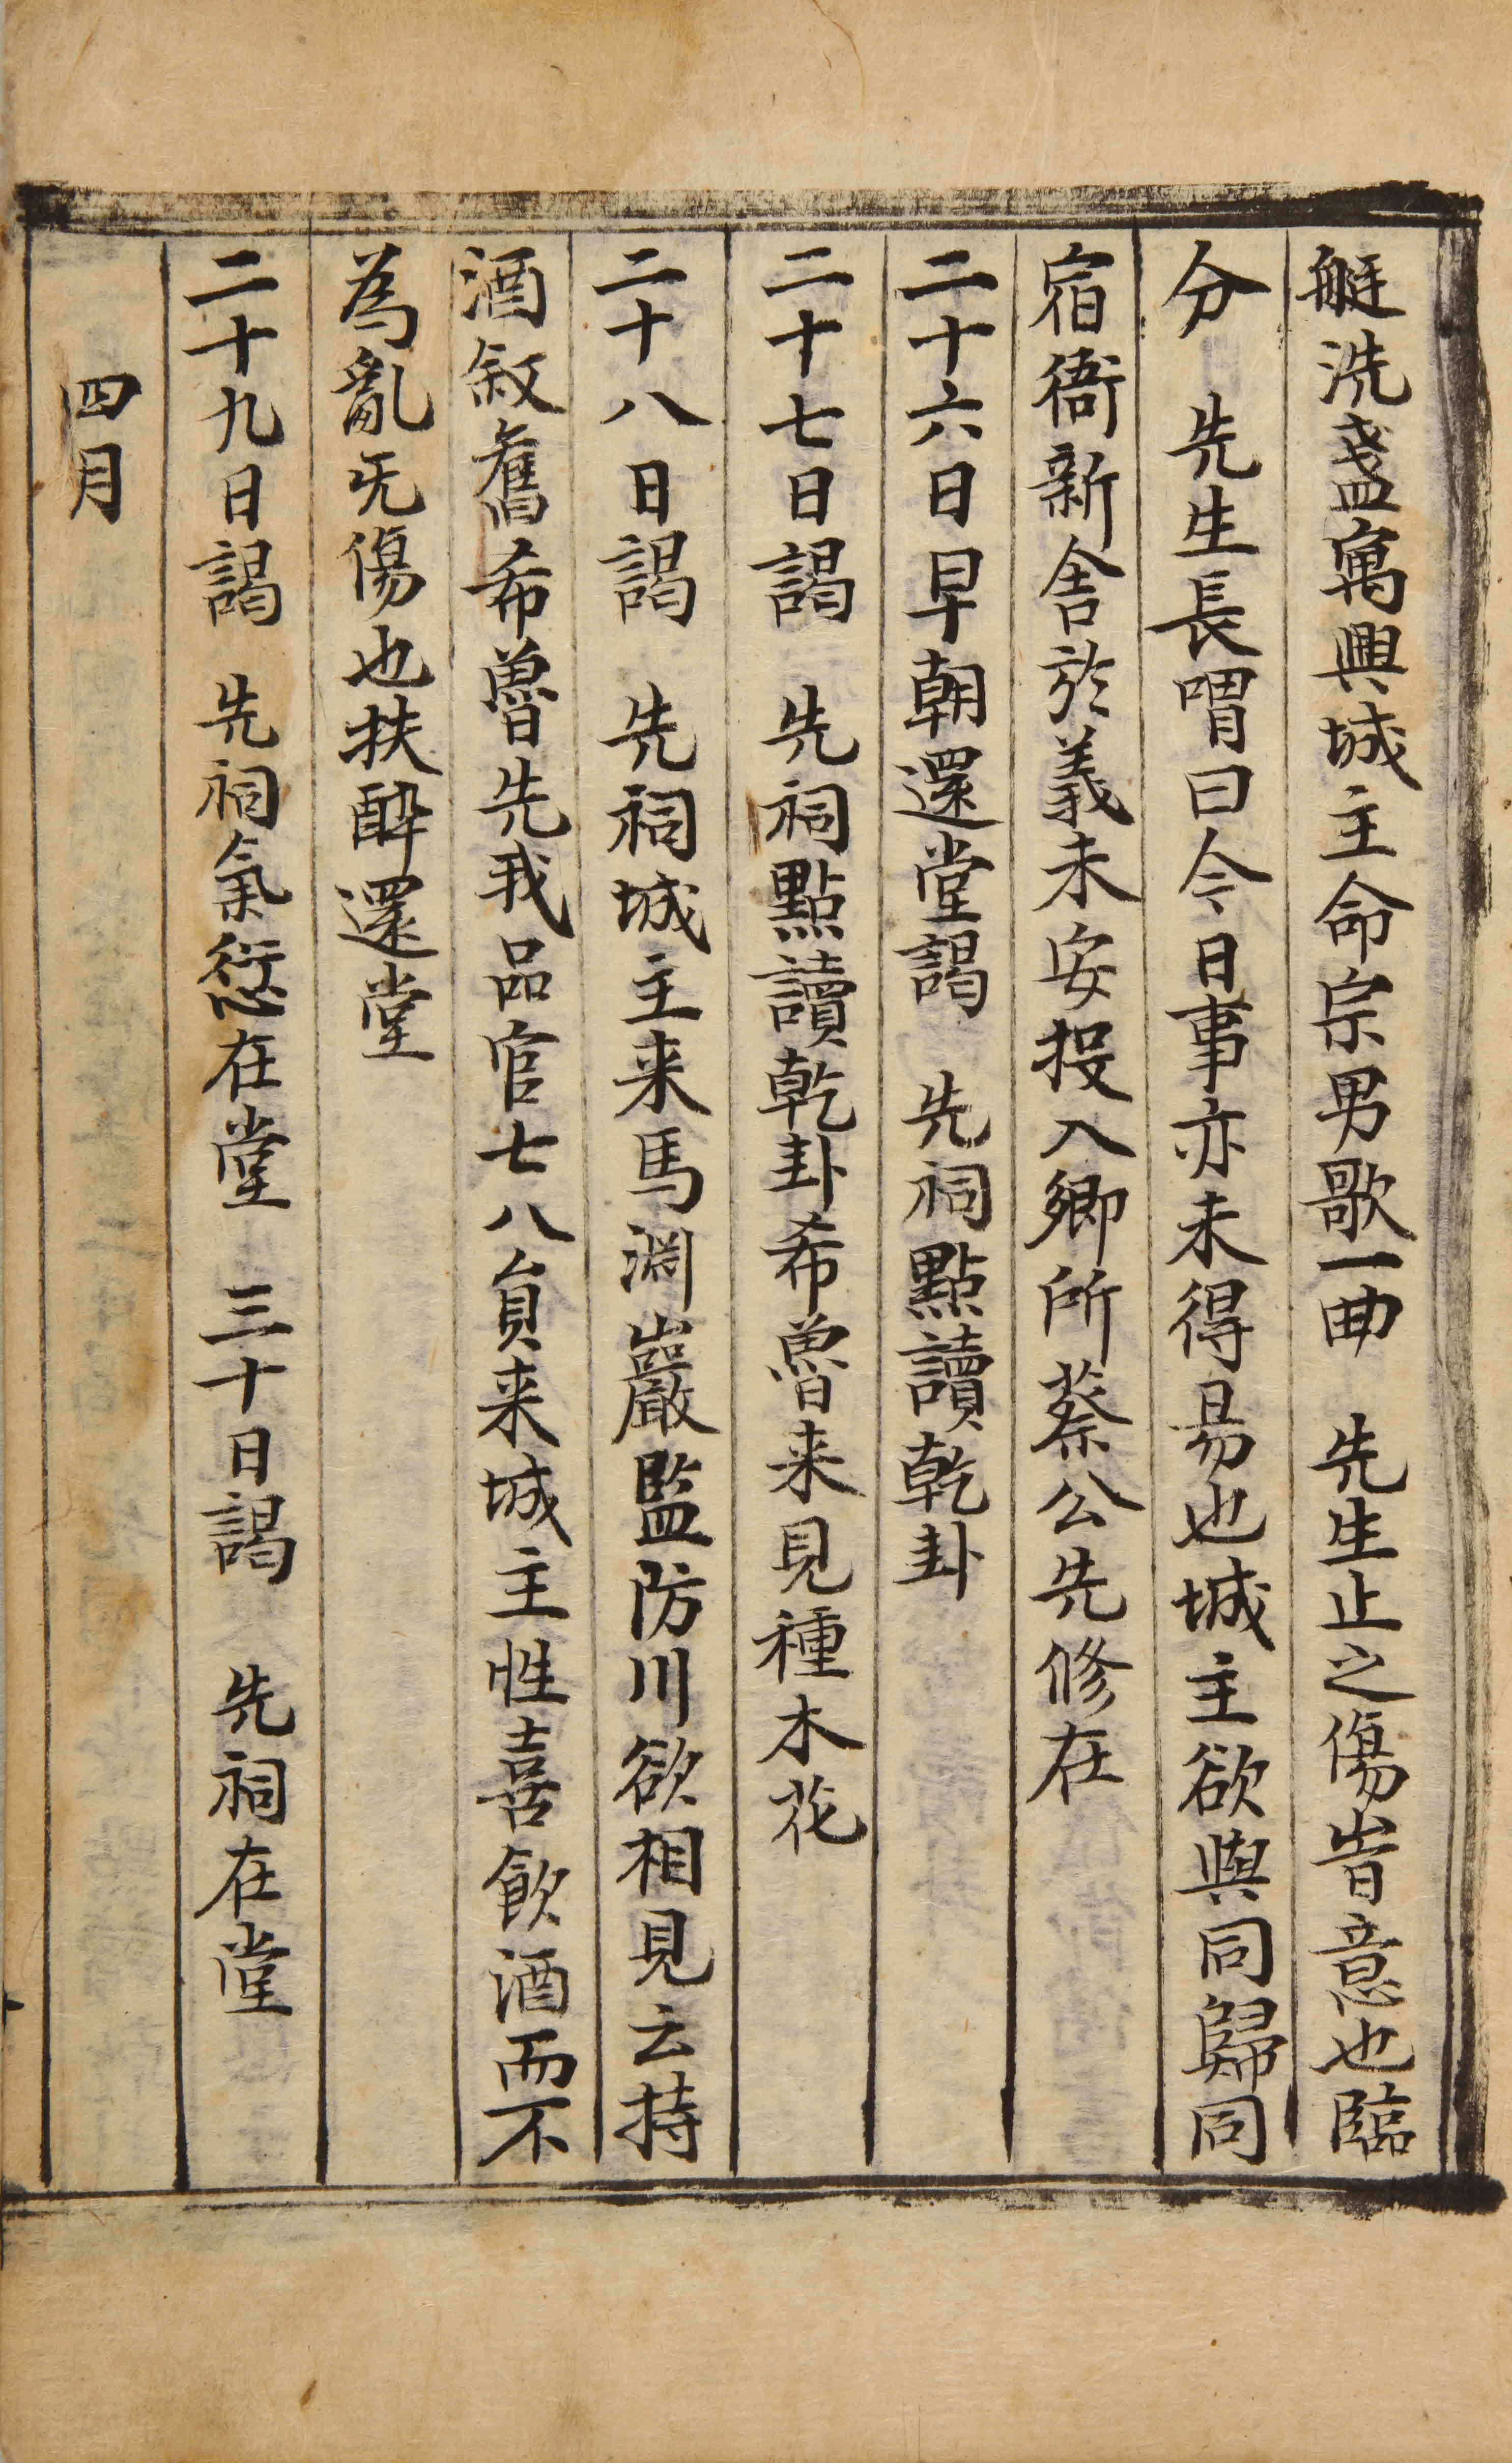 艇洗盞寓興城主命宗男歌一曲　先生止之傷時意也臨
分　先生長喟曰今日事亦未得易也城主欲與同歸同
宿衙新舍於義未安投入鄉所蔡公先修在
二十六日早朝還堂謁　先祠點讀乾卦
二十七日謁　先祠點讀乾卦希魯來見種木花
二十八日謁　先祠城主来馬渊巖監防川欲相見云持
酒敍舊希魯先我品官七八員来城主性喜飮酒而不
為亂旡傷也扶醉還堂
二十九日謁　先祠氣愆在堂　三十日謁　先祠在堂
四月